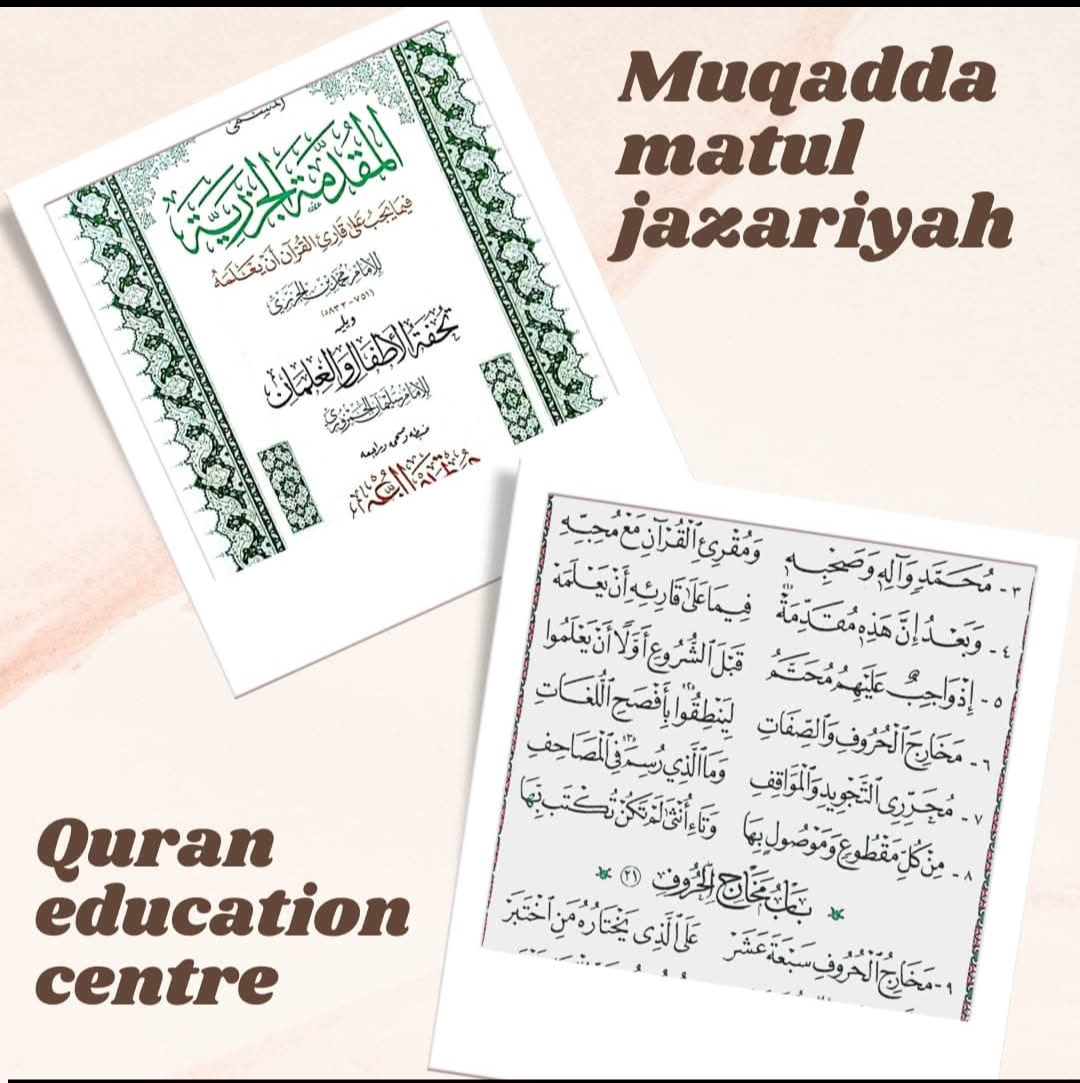 Muqadda
matul
jazariyah
المُقَدِّمَة الجَزَرِيَّة
فيما يجب على قارئ القرآن أن يعلمه
للإمام محمد بن الجزري
(٧٥١-٨٣٣هـ)
ويليه
تحفة الأطفال والغلمان
للإمام سليمان الجمزوري
ضبطه وصححه وراجعه
٣- مُحَمَّدٍ وَآلِهِ وَصَحْبِهِ وَمُقْرِئِ الْقُرْآنِ مَعْ مُحِبِّهِ
٤- وَبَعْدُ إِنَّ هَذِهِ مُقَدِّمَةْ فِيمَا عَلَى قَارِئِهِ أَنْ يَعْلَمَهْ
٥- إِذْ وَاجِبٌ عَلَيْهِمُ مُحَتَّمُ قَبْلَ الشُّرُوعِ أَوَّلًا أَنْ يَعْلَمُوا
٦- مَخَارِجَ الْحُرُوفِ وَالصِّفَاتِ لِيَنْطِقُوا بِأَفْصَحِ اللُّغَاتِ
٧- مُحَرِّرِي التَّجْوِيدِ وَالْمَوَاقِفِ وَمَا الَّذِي رُسِمَ فِي الْمَصَاحِفِ
٨- مِنْ كُلِّ مَقْطُوعٍ وَمَوْصُولٍ بِهَا وَتَاءِ أُنْثَى لَمْ تَكُنْ تُكْتَبْ بِهَا
بَابُ مَخَارِجِ الْحُرُوفِ (٢١)
٩- مَخَارِجُ الْحُرُوفِ سَبْعَةَ عَشَرْ عَلَى الَّذِي يَخْتَارُهُ مَنِ اخْتَبَرْ
Quran
education
centre